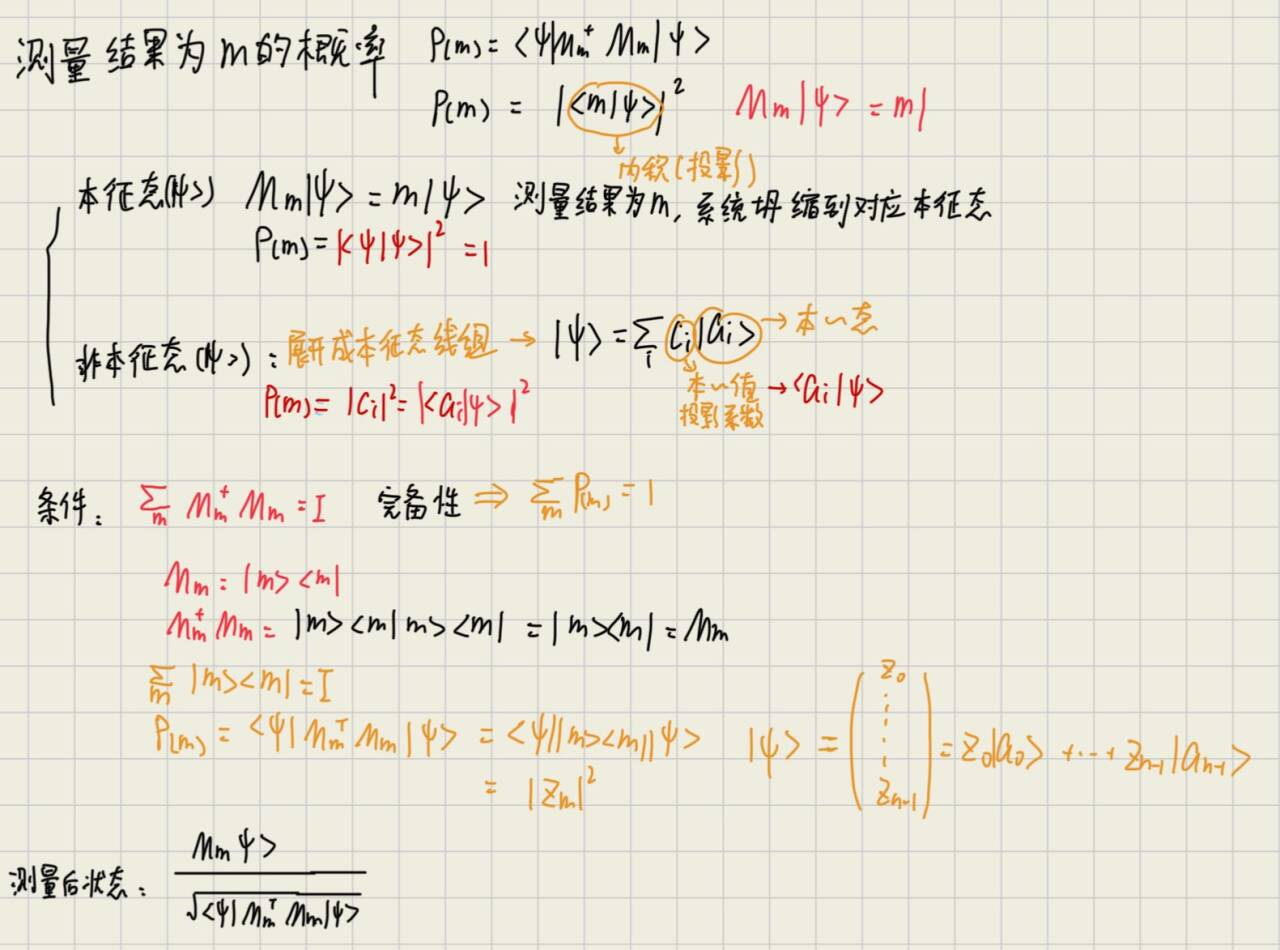 测量结果为m的概率 P(m) = <ψ|Mm⁺ Mm|ψ>
P(m) = |<m|ψ>|² Mm|ψ> = m|
内积(投影)
本征态(|ψ>) Mm|ψ> = m|ψ> 测量结果为m, 系统坍缩到对应本征态
P(m) = |<ψ|ψ>|² = 1
非本征态(|ψ>): 展开成本征态线组 → |ψ> = ∑i Ci|ai> → 本~态
P(m) = |Ci|² = |<ai|ψ>|² 本~值 → <ai|ψ>
投影系数
条件: ∑m Mm⁺ Mm = I 完备性 ⇒ ∑m P(m) = 1
Mm = |m><m|
Mm⁺ Mm = |m><m|m><m| = |m><m| = Mm
∑m |m><m| = I
P(m) = <ψ|Mm^T Mm|ψ> = <ψ||m><m||ψ> |ψ> = (z0 ⋮ zn-1) = z0|a0> + ··· + zn-1|an-1>
= |zm|²
测量后状态: Mm ψ> / √<ψ|Mm^T Mm|ψ>